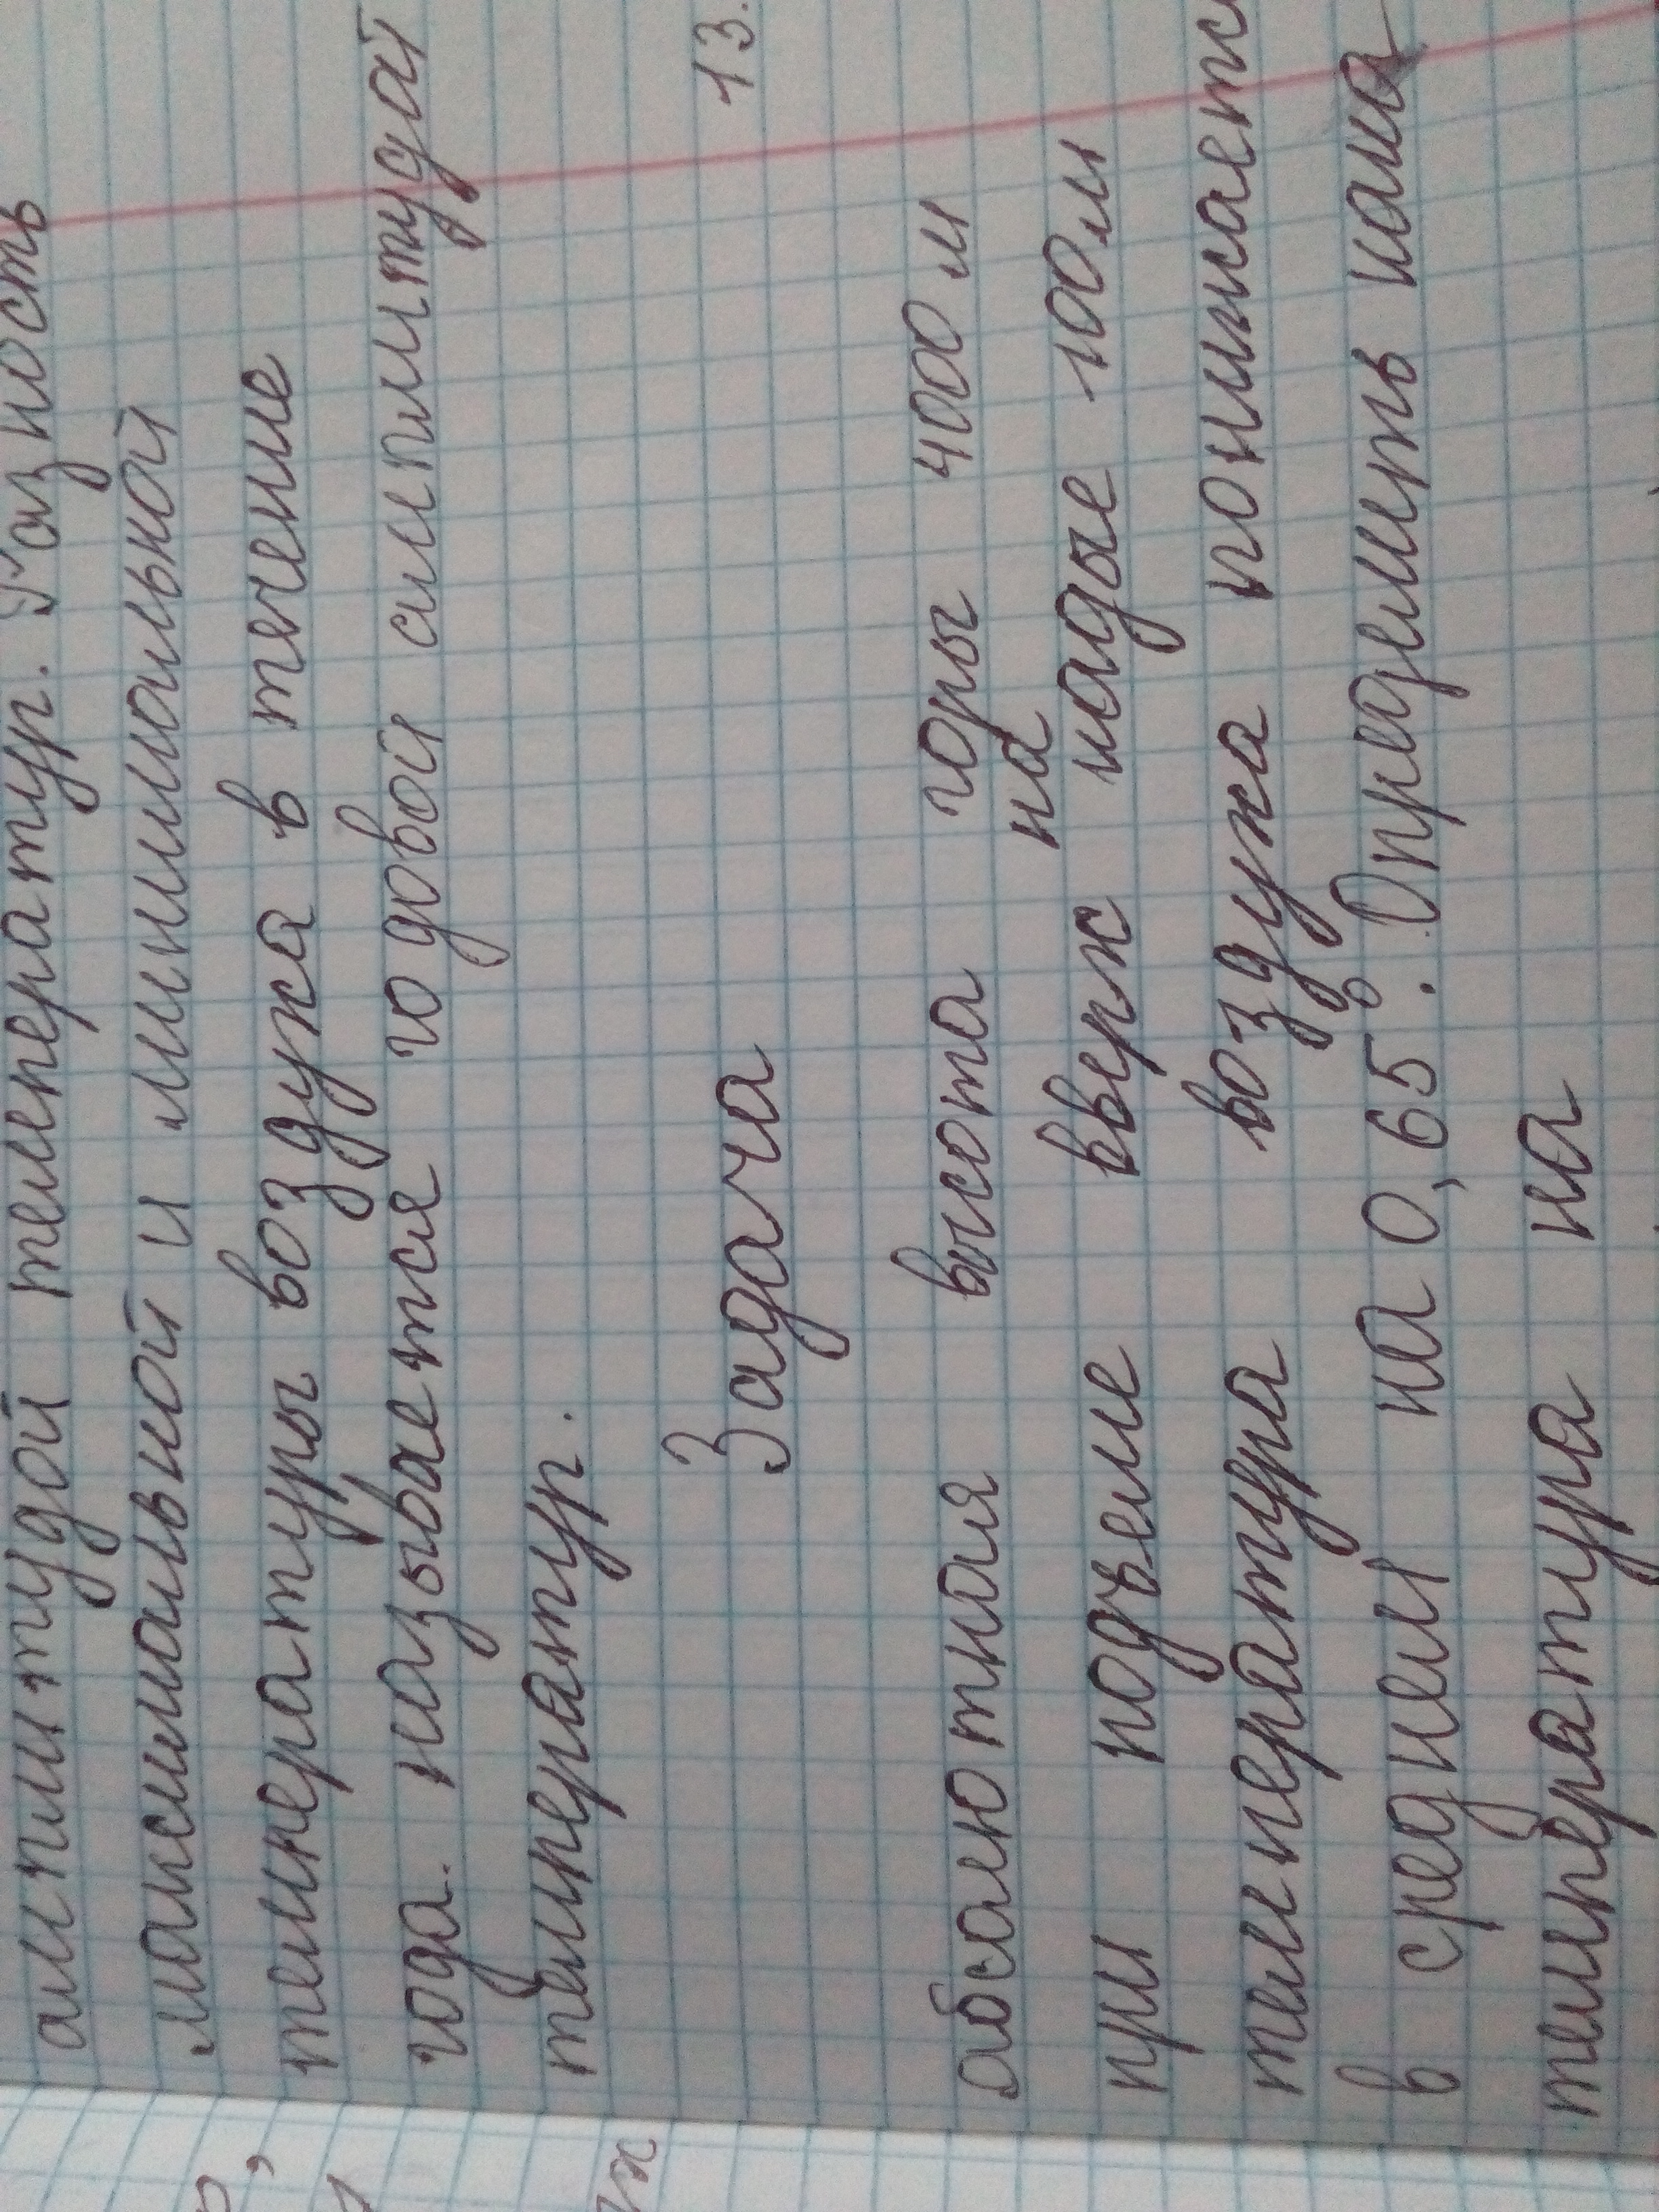 амплитудой температур. Разность
максимальной и минимальной
температуры воздуха в течение
года. называется годовой амплитудой
температур.
13.
Задача
абсолютная высота горы 400 м
при подъеме вверх на кадые 100м
температура воздуха понижаетс
в среднем на 0,65°. Определить кака
температура на